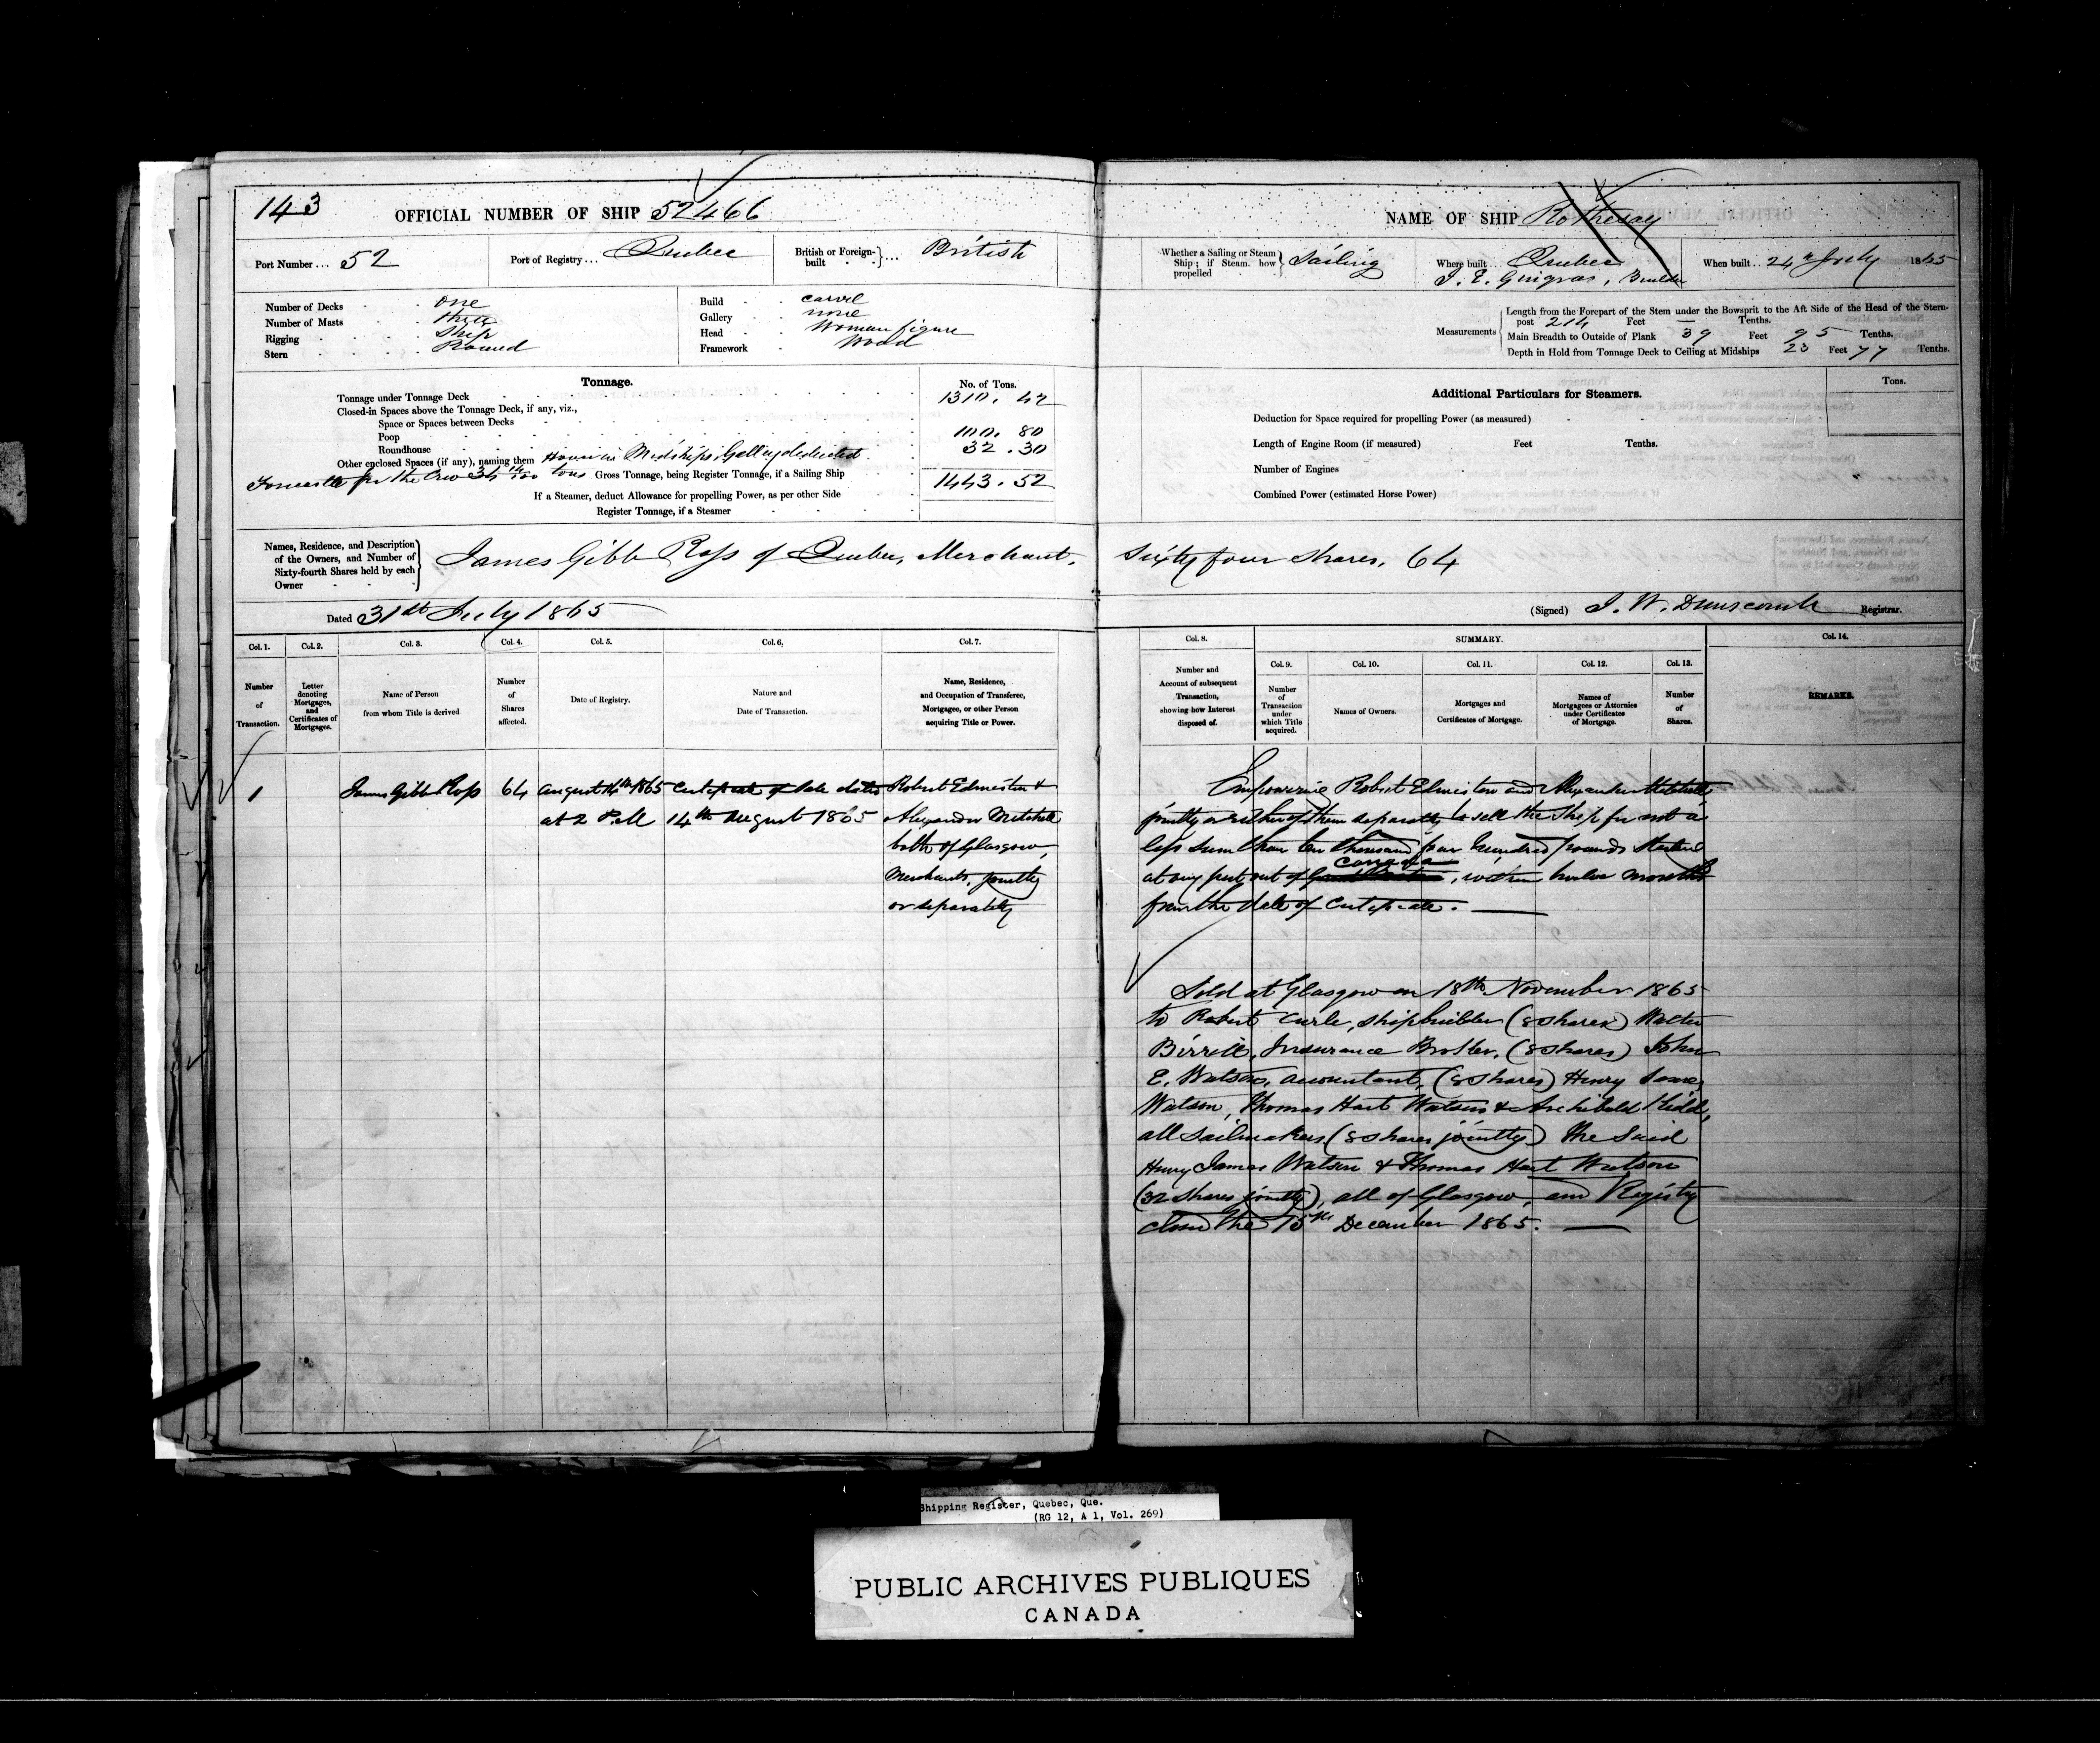 143
OFFICIAL NUMBER OF SHIP 52466
Port Number ... 52
Port of Registry ... Quebec
British or Foreign-built ... British
Number of Decks one
Number of Masts three
Rigging Ship
Stern Round
Build carvel
Gallery none
Head Woman figure
Framework Wood
Tonnage.
No. of Tons.
Tonnage under Tonnage Deck 1310. 42
Closed-in Spaces above the Tonnage Deck, if any, viz.,
Space or Spaces between Decks
Poop 100. 80
Roundhouse 32. 30
Other enclosed Spaces (if any), naming them House in Midships, Galley deducted
Forecastle for the Crew 34 14/100 tons
Gross Tonnage, being Register Tonnage, if a Sailing Ship 1443. 52
If a Steamer, deduct Allowance for propelling Power, as per other Side
Register Tonnage, if a Steamer
Names, Residence, and Description of the Owners, and Number of Sixty-fourth Shares held by each Owner
James Gibb Ross of Quebec, Merchant,
Dated 31st July 1865
Col. 1. Col. 2. Col. 3. Col. 4. Col. 5. Col. 6. Col. 7.
Number of Transaction.
Letter denoting Mortgages, and Certificates of Mortgages.
Name of Person from whom Title is derived
Number of Shares affected.
Date of Registry.
Nature and Date of Transaction.
Name, Residence, and Occupation of Transferee, Mortgagee, or other Person acquiring Title or Power.
1 James Gibb Ross 64 August 14th 1865 Certificate of Sale dated Robert Edmiston &
at 2 P.M 14th August 1865 Alexander Mitchell
both of Glasgow,
Merchants, jointly
or separately
NAME OF SHIP Rothesay
Whether a Sailing or Steam Ship; if Steam, how propelled Sailing
Where built Quebec
J. E. Gingras, Builder
When built 24th July 1865
Measurements
Length from the Forepart of the Stem under the Bowsprit to the Aft Side of the Head of the Stern-
post 214 Feet — Tenths.
Main Breadth to Outside of Plank 39 Feet 95 Tenths.
Depth in Hold from Tonnage Deck to Ceiling at Midships 23 Feet 77 Tenths.
Additional Particulars for Steamers.
Tons.
Deduction for Space required for propelling Power (as measured)
Length of Engine Room (if measured) Feet Tenths.
Number of Engines
Combined Power (estimated Horse Power)
Sixty four Shares, 64
(Signed) J. W. Dunscomb Registrar.
Col. 8. SUMMARY. Col. 14.
Col. 9. Col. 10. Col. 11. Col. 12. Col. 13.
Number and Account of subsequent Transaction, showing how Interest disposed of.
Number of Transaction under which Title acquired.
Names of Owners.
Mortgages and Certificates of Mortgage.
Names of Mortgagees or Attornies under Certificates of Mortgage.
Number of Shares.
REMARKS.
Empowering Robert Edmiston and Alexander Mitchell
jointly or either of them separately to sell the Ship for not a
less sum than ten thousand four hundred pounds Sterling
at any port out of Canada, within twelve months
from the date of Certificate.
Sold at Glasgow on 18th November 1865
to Robert Curle, shipbuilder (8 shares) Walter
Birrell, Insurance Broker, (8 shares) John
E. Watson, accountant, (8 shares) Henry James
Watson, Thomas Hart Watson & Archibald Kidd,
all Sailmakers (8 shares jointly) the Said
Henry James Watson & Thomas Hart Watson
(32 Shares jointly), all of Glasgow, and Registry
closed the 15th December 1865.
Shipping Register, Quebec, Que.
(RG 12, A 1, Vol. 269)
PUBLIC ARCHIVES PUBLIQUES
CANADA